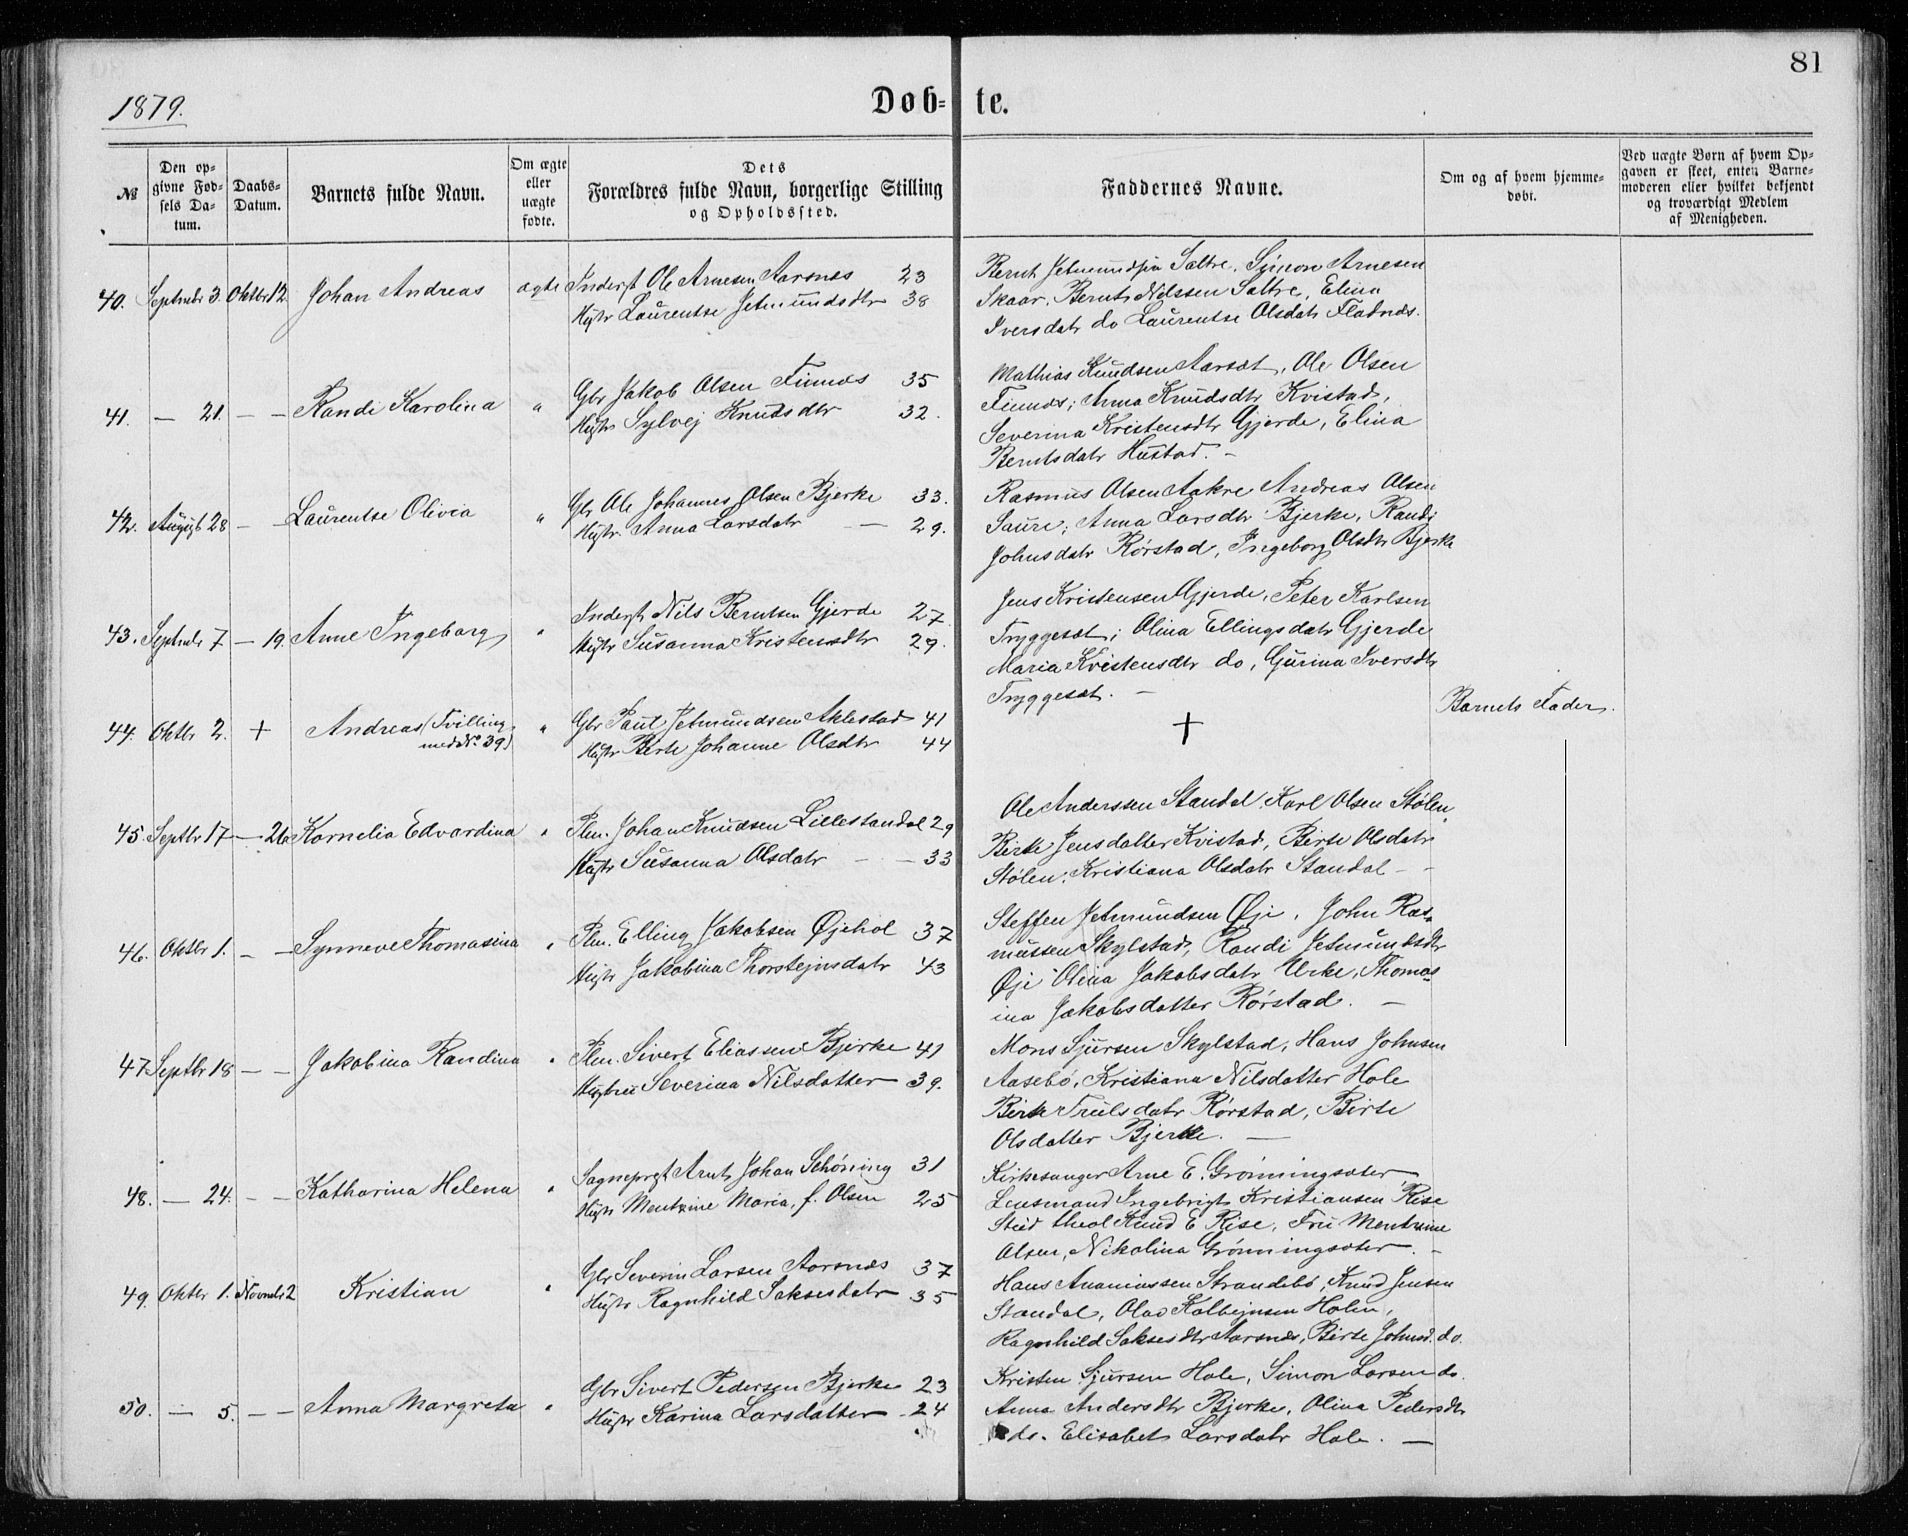 81
1879.
Døb- te.
№
Den op-
givne Fød-
sels Da-
tum.
Daabs-
Datum.
Barnets fulde Navn.
Om ægte
eller
uægte
fødte.
Dets
Forældres fulde Navn, borgerlige Stilling
og Opholdssted.
Faddernes Navne.
Om og af hvem hjemme-
døbt.
Ved uægte Børn af hvem Op-
gaven er skeet, enten Barne-
moderen eller hvilket bekjendt
og troværdigt Medlem
af Menigheden.
40. Septmbr 3. Oktbr 12 Johan Andreas ægte Inderst Ole Arnesen Aarsnes 23
Hustr Laurentse Jetmundsdtr 38
Bernt Jetmundsen Sætre, Simon Arnesen
Skaar, Bernt Nilssen Sætre, Elina
Iversdatr do Laurentse Olsdatr Fladnæs.
41. — 21. — — Randi Karolina " Gbr Jakob Olsen Finnæs 35
Hustr Sylvej Knudsdtr 32.
Mathias Knudsen Aarsæt, Ole Olsen
Finnæs; Anna Knudsdtr Kvistad,
Severina Kristensdtr Gjerde, Elina
Berntsdatr Hustad. —
42. August 28 — — Laurentse Olivia " Gbr Ole Johannes Olsen Bjerke 33.
Hustr. Anna Larsdatr — 29.
Rasmus Olsen Aakre Andreas Olsen
Saure; Anna Larsdtr Bjerke, Randi
Johnsdatr Rørstad, Ingeborg Olsdtr Bjerke
43. Septmbr 7 — 19. Anne Ingeborg " Inderst Nils Berntsen Gjerde 27
Hustr Susanna Kristensdtr 29.
Jens Kristensen Gjerde, Peter Karlsen
Tryggesæt; Olina Ellingsdatr Gjerde
Maria Kristensdtr do, Gurina Iversdtr
Tryggesæt. —
44. Oktbr 2. + Andreas (Tvilling
med No. 39) " Gbr Paul Jetmundsen Aklestad 41
Hustr Birte Johanne Olsdtr 44
+
Barnets Fader.
45. Septbr 17 — 26 Kornelia Edvardina " Plm. Johan Knudsen Lillestandal 29
Hustr Susanna Olsdatr — — 33
Ole Anderssen Standal, Karl Olsen Stølen,
Birte Jensdatter Kvistad, Birte Olsdatr
Stølen, Kristiana Olsdatr Standal —
46. Oktbr 1. — — Synneve Thomasina " Plm. Elling Jakobsen Øjehol 37
Hustr Jakobina Thorstejnsdatr 43
Steffen Jetmundsen Øje, John Ras-
mussen Skylstad, Randi Jetmundsdtr
Øje Olina Jakobsdatr Urke, Thomas-
ina Jakobsdatter Rørstad. —
47 Septbr 18 — — Jakobina Randina " Plm. Sivert Eliassen Bjerke 41
Hustru Severina Nilsdatter 39.
Mons Sjursen Skylstad, Hans Johnsen
Aasebø, Kristiana Nilsdatter Hole
Birte Trulsdatr Rørstad, Birte
Olsdatter Bjerke. —
48. — 24. — — Katharina Helena " Sognepræst Arnt Johan Schöning 31
Hustr Mentzine Maria, f. Olsen 25
Kirkesanger Arne E. Grønningsæter
Lensmand Ingebrigt Kristiansen Rise
Stud theol Knud E Rise, Fru Mentzine
Olsen, Nikolina Grønningsæter. —
49. Oktbr 1. Novmbr 2 Kristian " Gbr Severin Larsen Aarsnæs 37
Hustr Ragnhild Saksesdatr 35
Hans Ananiassen Strandebø, Knud Jensen
Standal, Olav Kolbejnsen Holen,
Ragnhild Saksesdtr Aarsnæs, Birte Johnsd. do.
50. — 5. — — Anna Margreta " Gbr Sivert Pedersen Bjerke 23
Hustr Karina Larsdatter 24
Kristen Sjursen Hole, Simon Larsen do.
Anna Andersdtr Bjerke, Olina Pedersdtr
do. Elisabet Larsdatr Hole. —